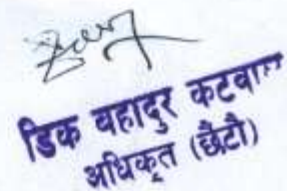 डिक बहादुर कटवाल
अधिकृत (छैटौ)